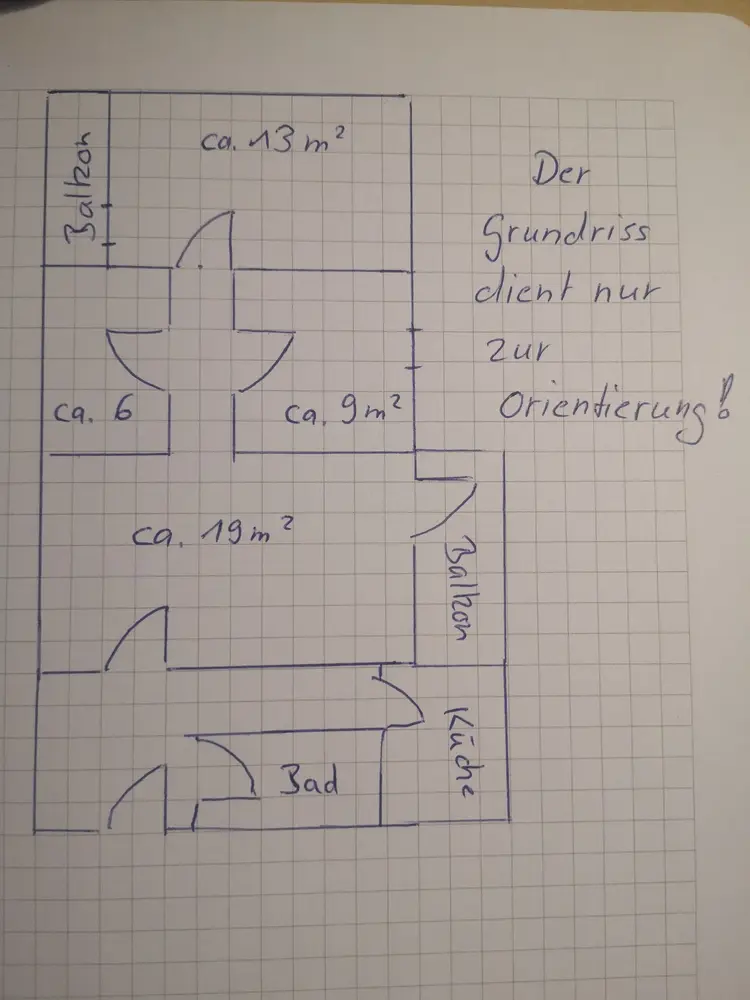 Balkon
ca. 13 m²
Der
Grundriss
dient nur
zur
Orientierung!
ca. 6
ca. 9m²
ca. 19m²
Balkon
Küche
Bad